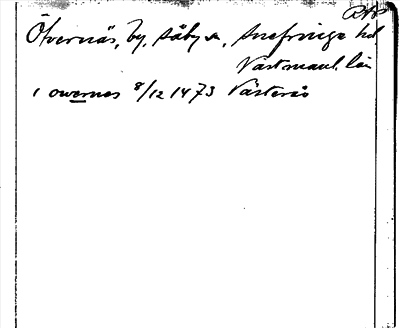 Ötvernäs, by, Säby sn, Snefringe hd
Västmanl. län
i owernes 8/12 1473 Västerås